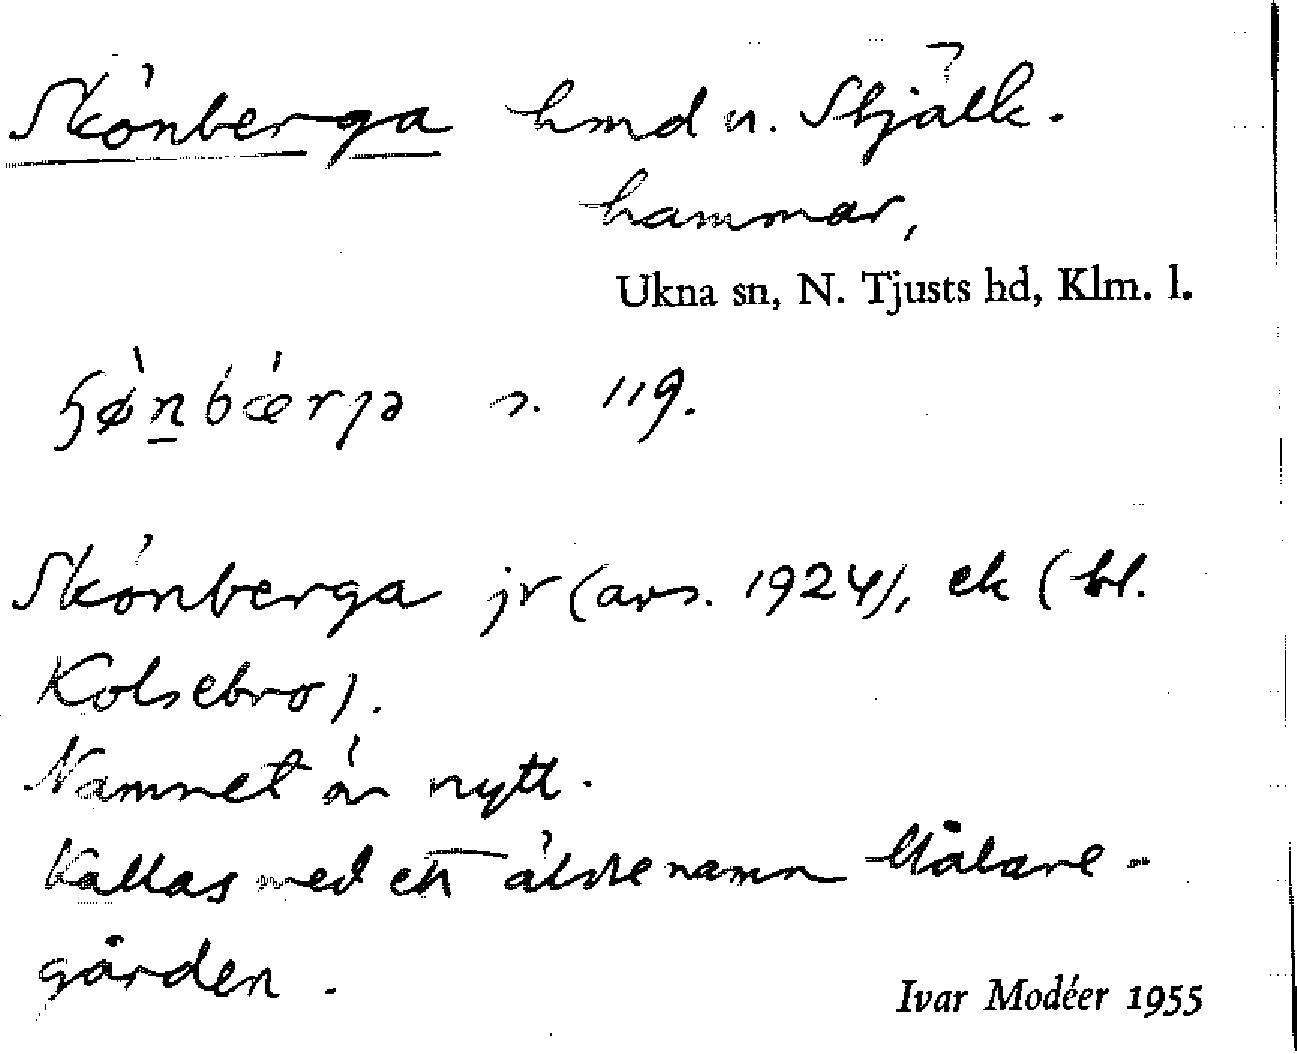 Skönberga hmd u. Skjälk-
hammar,
Ukna sn, N. Tjusts hd, Klm. l.
s. 119.
Skönberga jr (avs. 1924), ek (bl.
Kolsebro).
Namnet är nytt.
Kallas med ett äldre namn Målare-
gården.
Ivar Modéer 1955